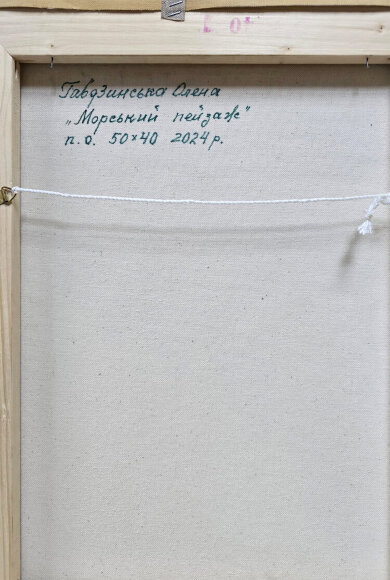 Гавдзинська Олена
„Морський пейзаж"
п.о. 50×40 2024р.